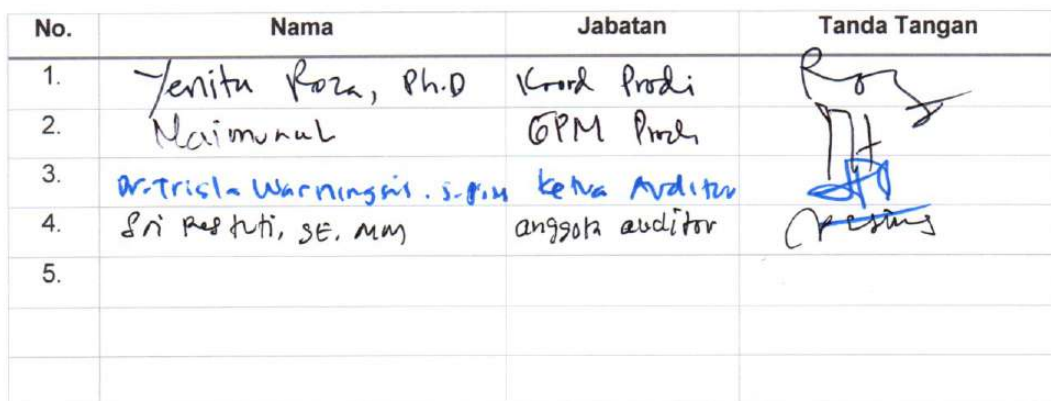 No. Nama Jabatan Tanda Tangan
1. Yenita Roza, Ph.D Koord Prodi
2. Maimunah GPM Prodi
3. Dr. Trisla Warningsih. S.Pi. M Ketua Auditor
4. Sri Restuti, SE. MM anggota auditor
5.